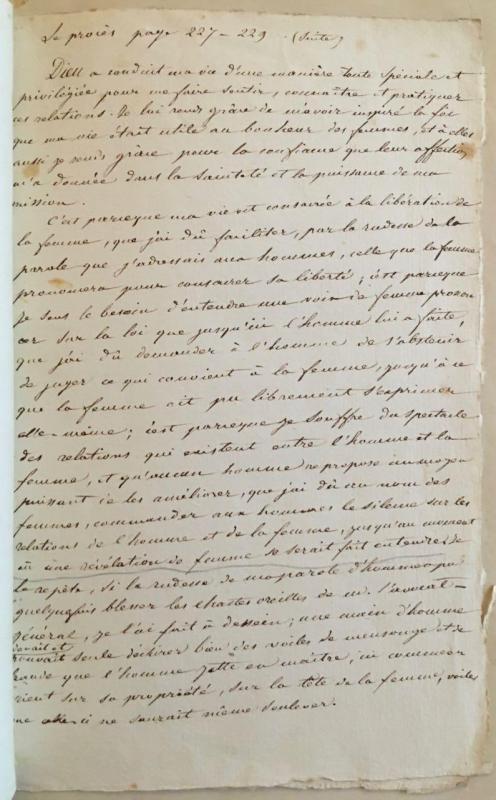 Le procès page 227-229. (Suite)
Dieu a conduit ma vie d'une manière toute spéciale et
privilégiée pour me faire sentir, connaître et pratiquer
ces relations. Je lui rends grâce de m'avoir inspiré la foi
que ma vie était utile au bonheur des femmes, et à elles
aussi je rends grâce pour la confiance que leur affection
m'a donnée dans la sainteté et la puissance de ma
mission.
C'est parceque ma vie est consacrée à la libération de
la femme, que j'ai dû faciliter, par la rudesse de la
parole que j'adressais aux hommes, celle que la femme
prononcera pour consacrer sa liberté; c'est parceque
je sens le besoin d'entendre une voix de femme pronon
cer sur la loi que jusqu'ici l'homme lui a faite,
que j'ai dû demander à l'homme de s'abstenir
de juger ce qui convient à la femme, jusqu'à ce
que la femme ait pu librement s'exprimer
elle-même; c'est parceque je souffre du spectacle
des relations qui existent entre l'homme et la
femme, et qu'aucun homme ne propose un moyen
puissant de les améliorer, que j'ai dû au nom des
femmes, commander aux hommes le silence sur les
relations de l'homme et de la femme, jusqu'au moment
où une révélation de femme se serait fait entendre. Je
le repète, si la rudesse de ma parole d'homme a pu
quelquefois blesser les chastes oreilles de m. l'avocat-
général, je l'ai fait à dessein; une main d'homme
devait et
pouvait seule déchirer bien des voiles de mensonge et de
fraude que l'homme jette en maître, et comme un
sur sa propriété, sur la tête de la femme, voiles
que celle-ci ne saurait même soulever.